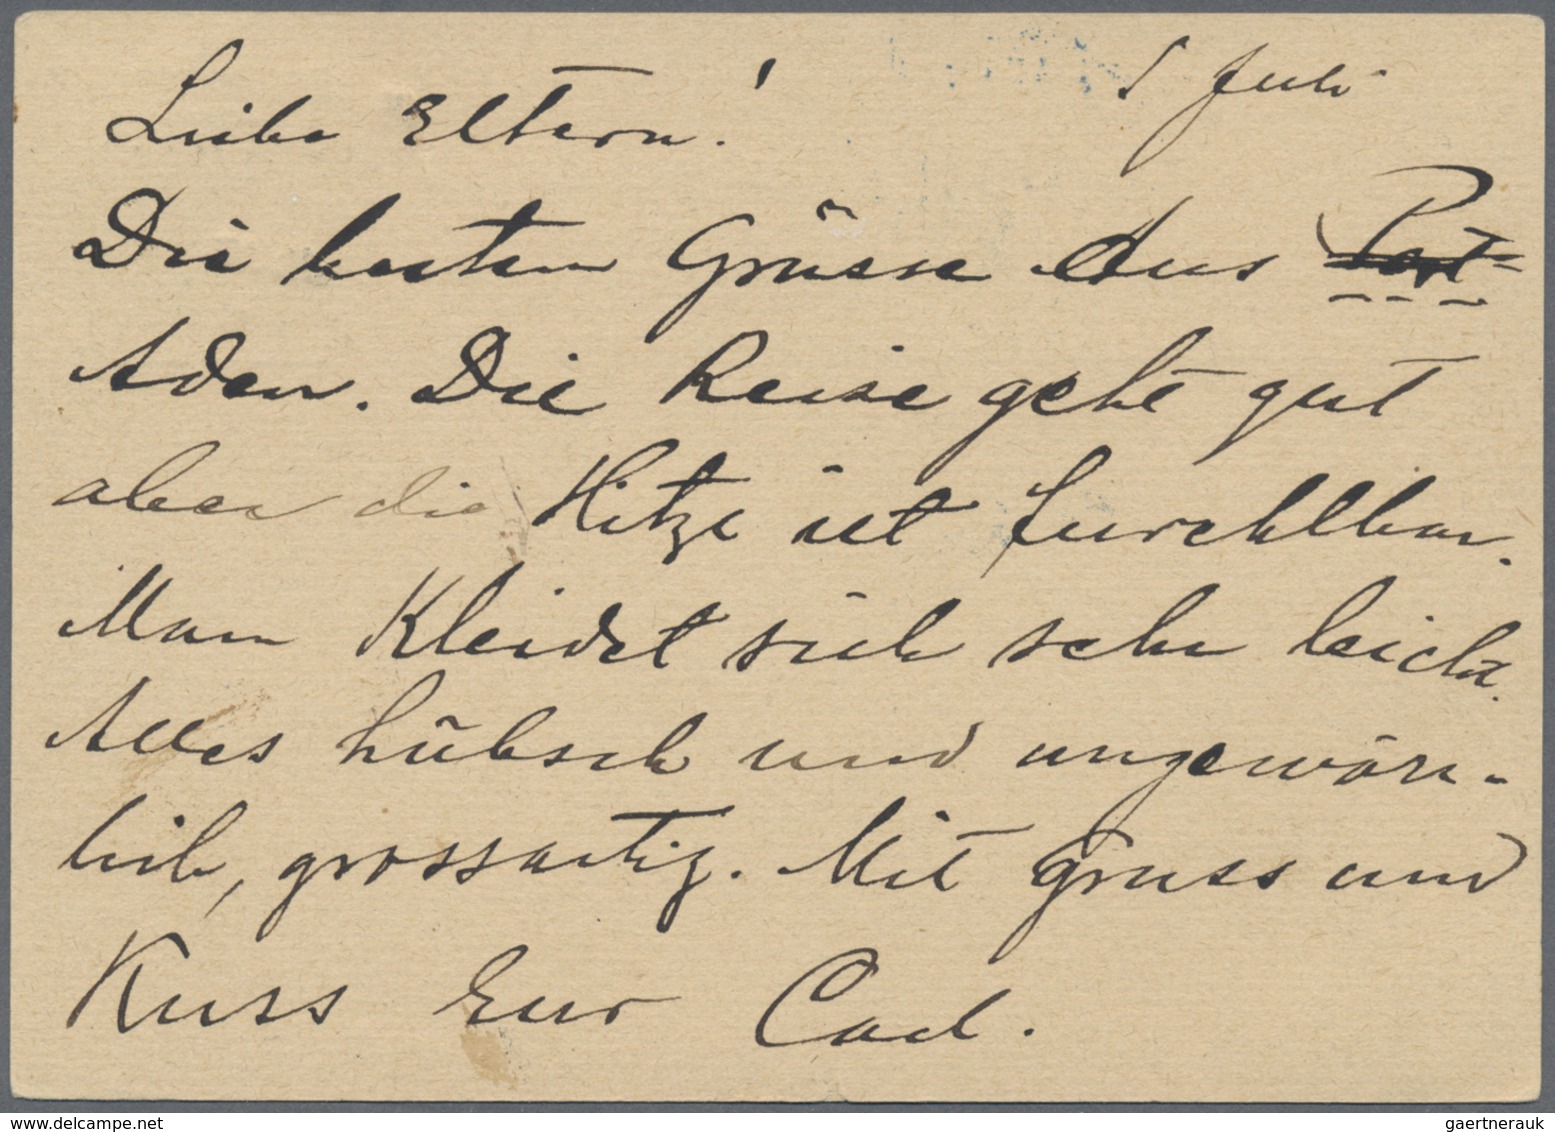 Juli
Liebe Eltern!
Die besten Grüsse Aus Port
Aden. Die Reise geht gut
aber die Hitze ist furchtbar.
Man Kleidet sich sehr leicht.
Alles hübsch und ungewöhn-
lich, grossartig. Mit Gruss und
Kuss Eur Carl.
gaertnerauk